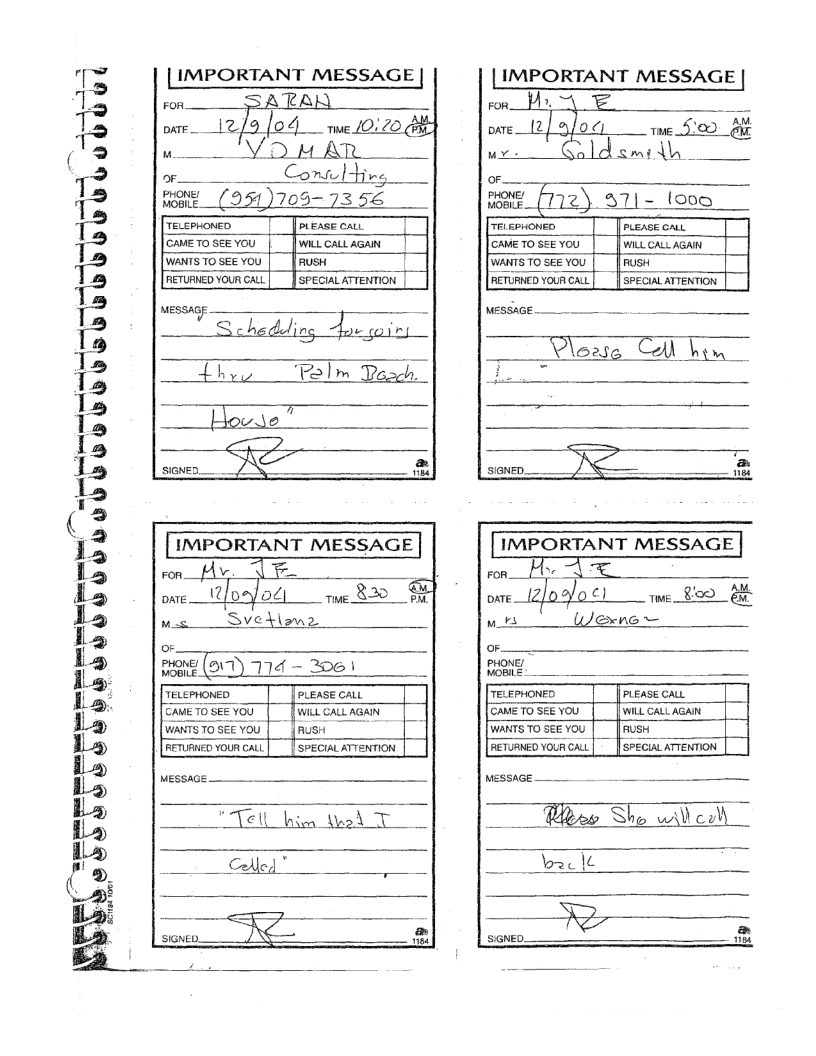 IMPORTANT MESSAGE
FOR SARAH
DATE 12/9/04 TIME 10:20 A.M. P.M.
M VDMAR
OF Consulting
PHONE/ MOBILE (954) 709-7356
TELEPHONED PLEASE CALL
CAME TO SEE YOU WILL CALL AGAIN
WANTS TO SEE YOU RUSH
RETURNED YOUR CALL SPECIAL ATTENTION
MESSAGE
Scheduling for going
thru Palm Beach
House"
SIGNED
1184
IMPORTANT MESSAGE
FOR Mr. JE
DATE 12/9/04 TIME 5:00 A.M. P.M.
Mr. Goldsmith
OF
PHONE/ MOBILE (772) 971-1000
TELEPHONED PLEASE CALL
CAME TO SEE YOU WILL CALL AGAIN
WANTS TO SEE YOU RUSH
RETURNED YOUR CALL SPECIAL ATTENTION
MESSAGE
Please Call him
SIGNED
1184
IMPORTANT MESSAGE
FOR Mr. JE
DATE 12/09/04 TIME 8:30 A.M. P.M.
Ms Svetlana
OF
PHONE/ MOBILE (917) 774-3061
TELEPHONED PLEASE CALL
CAME TO SEE YOU WILL CALL AGAIN
WANTS TO SEE YOU RUSH
RETURNED YOUR CALL SPECIAL ATTENTION
MESSAGE
"Tell him that I
Called"
SIGNED
1184
IMPORTANT MESSAGE
FOR Mr. JE
DATE 12/09/04 TIME 8:00 A.M. P.M.
Mrs Wexner
OF
PHONE/ MOBILE
TELEPHONED PLEASE CALL
CAME TO SEE YOU WILL CALL AGAIN
WANTS TO SEE YOU RUSH
RETURNED YOUR CALL SPECIAL ATTENTION
MESSAGE
She will call
back
SIGNED
1184
SC1184 10/01